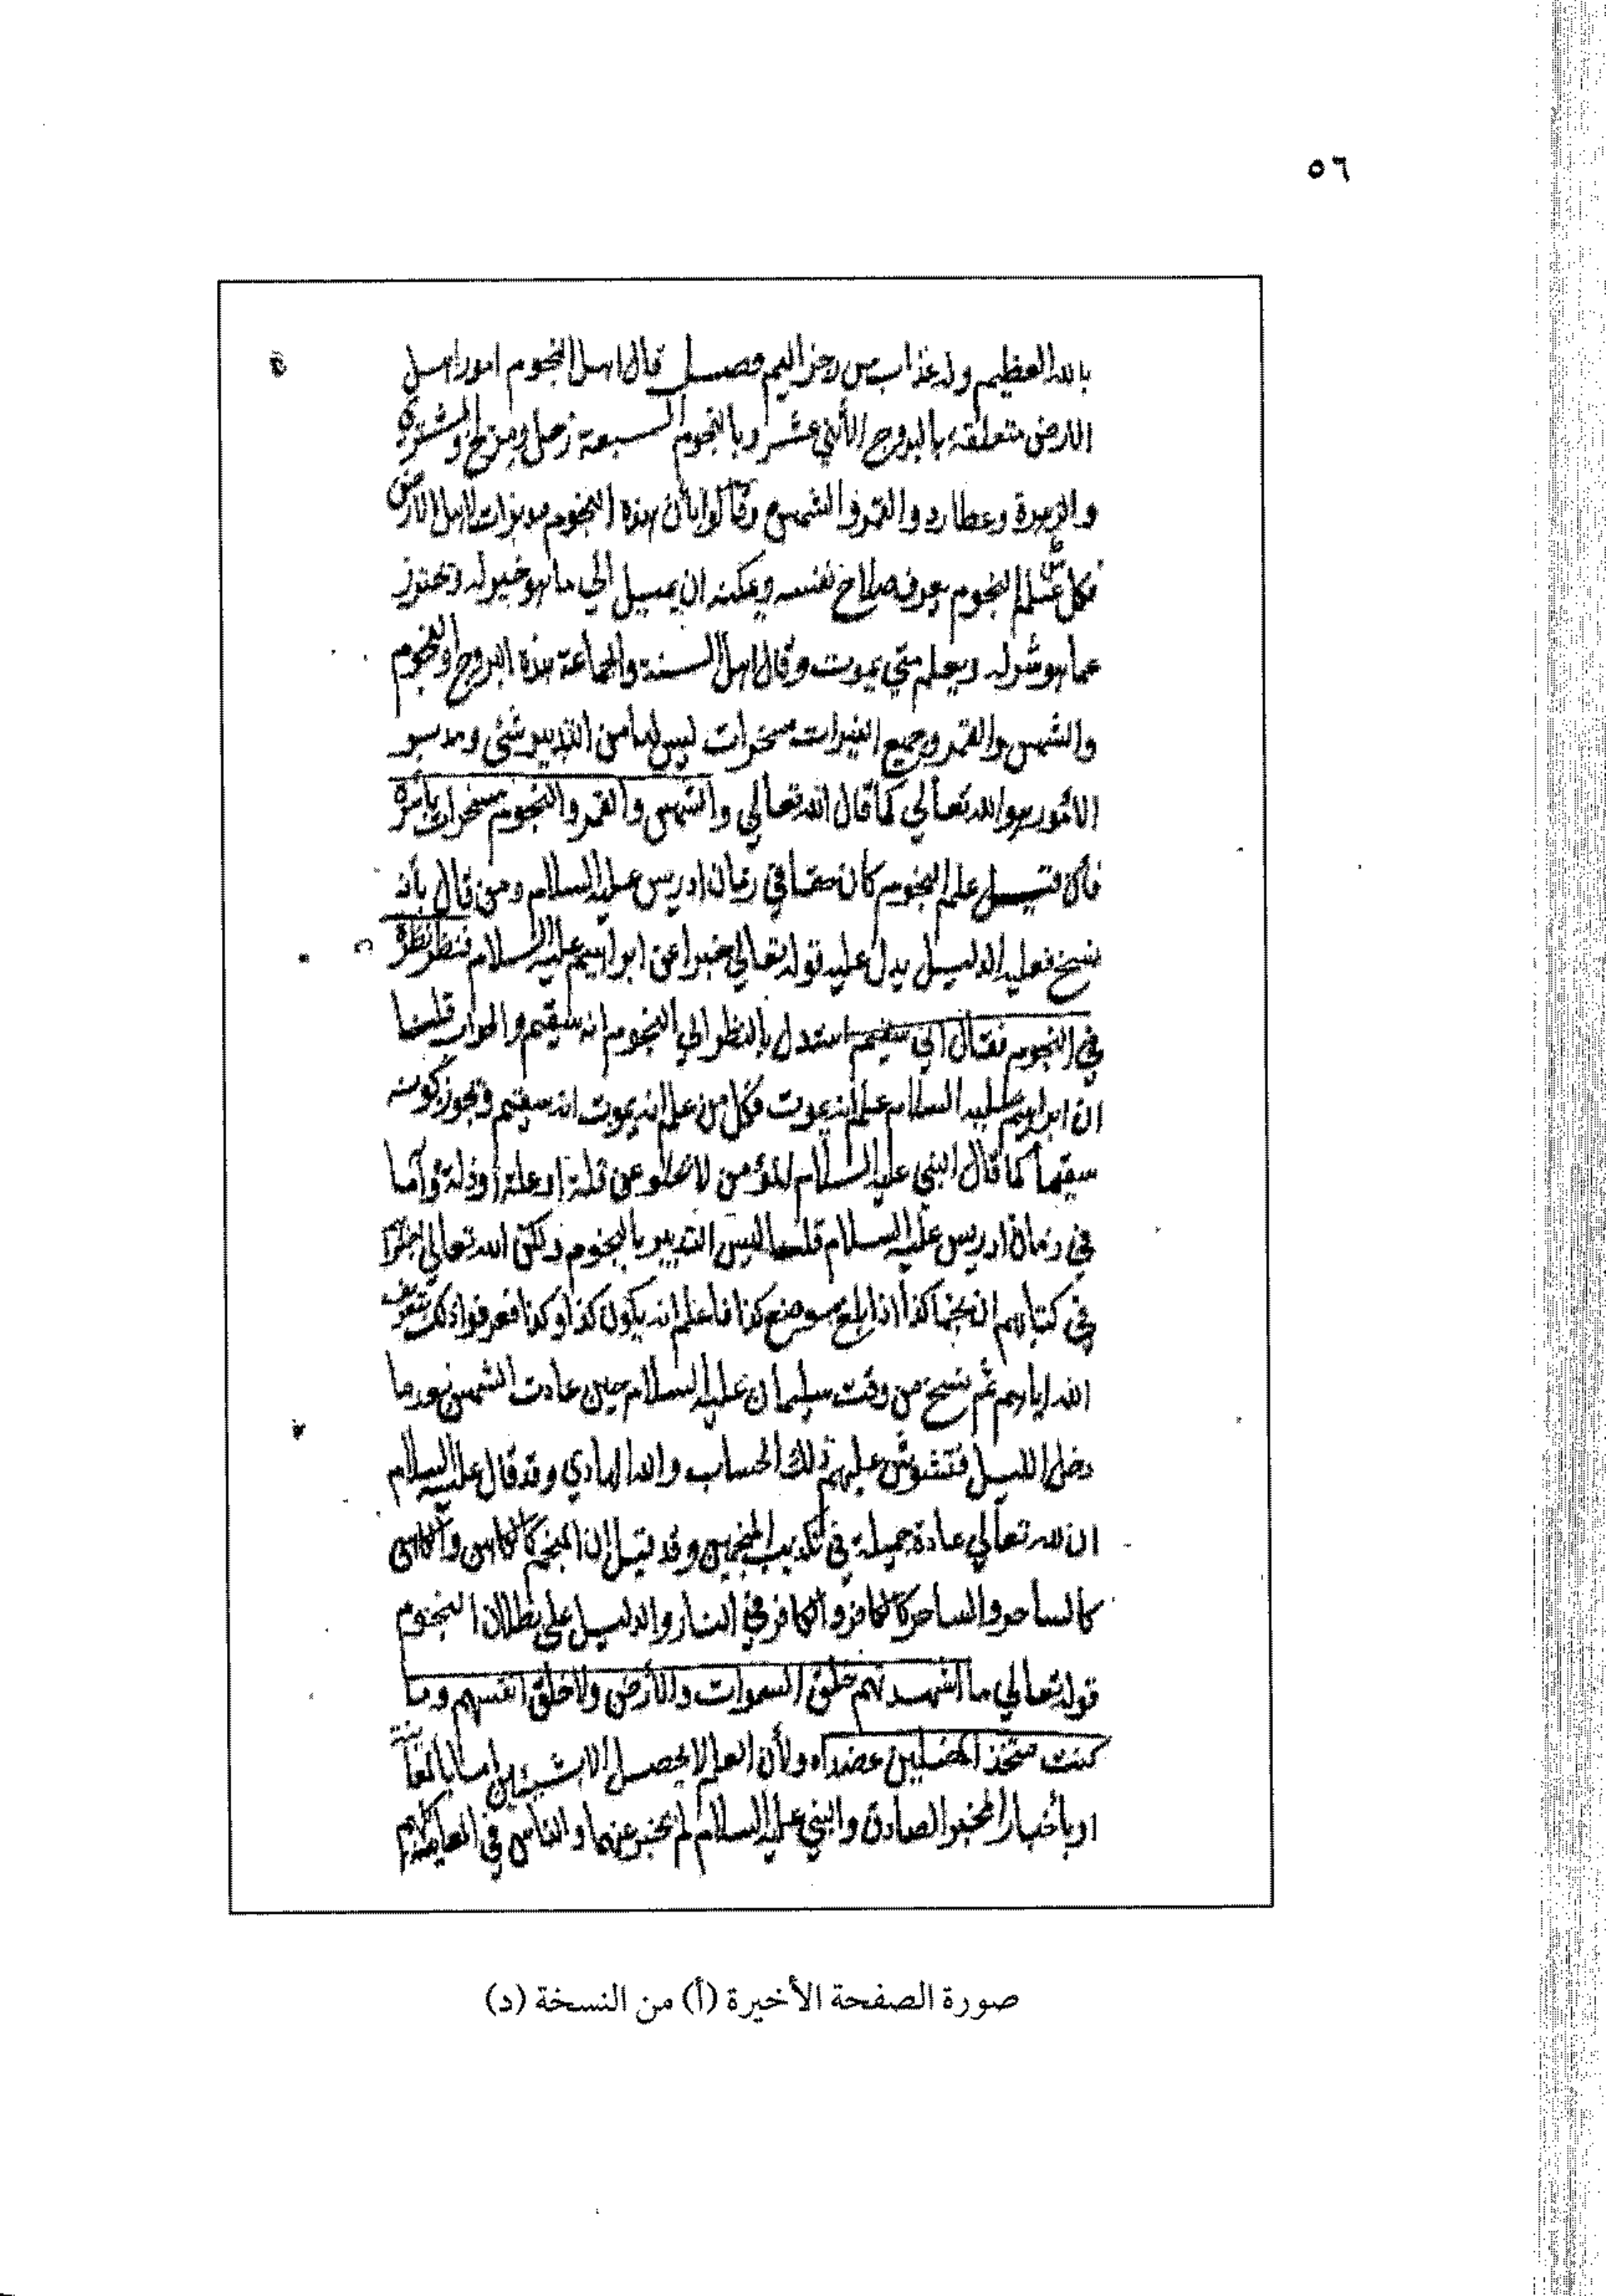 ٥٦
بالله العظيم وله عذاب من رجز اليم فصل قال اهل النجوم امور اهل
الارض متعلقة بالبروج الأثني عشر وبالنجوم السبعة زحل ومريخ والمشتري
والزهرة وعطارد والقمر والشمس وقالوا بأن هذه النجوم مدبرات لاهل الأرض
فكل من علم النجوم يعرف صلاح نفسه ويمكنه ان يميل الي ما هو خير له ويحترز
عما هو شر له ويعلم متي يموت وقال اهل السنة والجماعة هذه البروج والنجوم
والشمس والقمر وجميع النيرات مسخرات ليس لها من التدبير شئ ومدبر
الأمور هو الله تعالي كما قال الله تعالي والشمس والقمر والنجوم مسخرات بأمره
فأن قيل علم النجوم كان حقا في زمان ادريس عليه السلام ومن قال بأنه
نسخ فعليه الدليل يدل عليه قوله تعالي خبرا عن ابراهيم عليه السلام فنظر نظرة
في النجوم فقال اني سقيم استدل بالنظر الي النجوم انه سقيم والجواب قلنا
ان ابراهيم عليه السلام علم انه يموت فكل من علم انه يموت انه سقيم ويجوز كونه
سقيما كما قال النبي عليه السلام المؤمن لا يخلو عن قلة او علة او ذلة وأما
في زمان ادريس عليه السلام قلنا ليس التدبير بالنجوم ولكن الله تعالي
في كتابهم ان نجما كذا اذا بلغ موضع كذا فاعلم انه يكون كذا وكذا فعرفوا ذلك بتعريف
الله اياهم ثم نسخ من وقت سليمان عليه السلام حين عادت الشمس بعد ما
دخل الليل فتشوش عليهم ذلك الحساب والله الهادي وقد قال عليه السلام
ان لله تعالي عادة جميلة في تكذيب المنجمين وقد قيل ان المنجم كالكاهن والكاهن
كالساحر والساحر كالكافر والكافر في النار والدليل علي بطلان النجوم
قوله تعالي ما اشهدتهم خلق السموات والأرض ولا خلق انفسهم وما
كنت متخذ المضلين عضدا ولأن العلم لا يحصل الا بشيئين اما بالمعاينة
او بأخبار المخبر الصادق والنبي عليه السلام لم يخبر عنهما والناس في المعاينة
صورة الصفحة الأخيرة (أ) من النسخة (د)